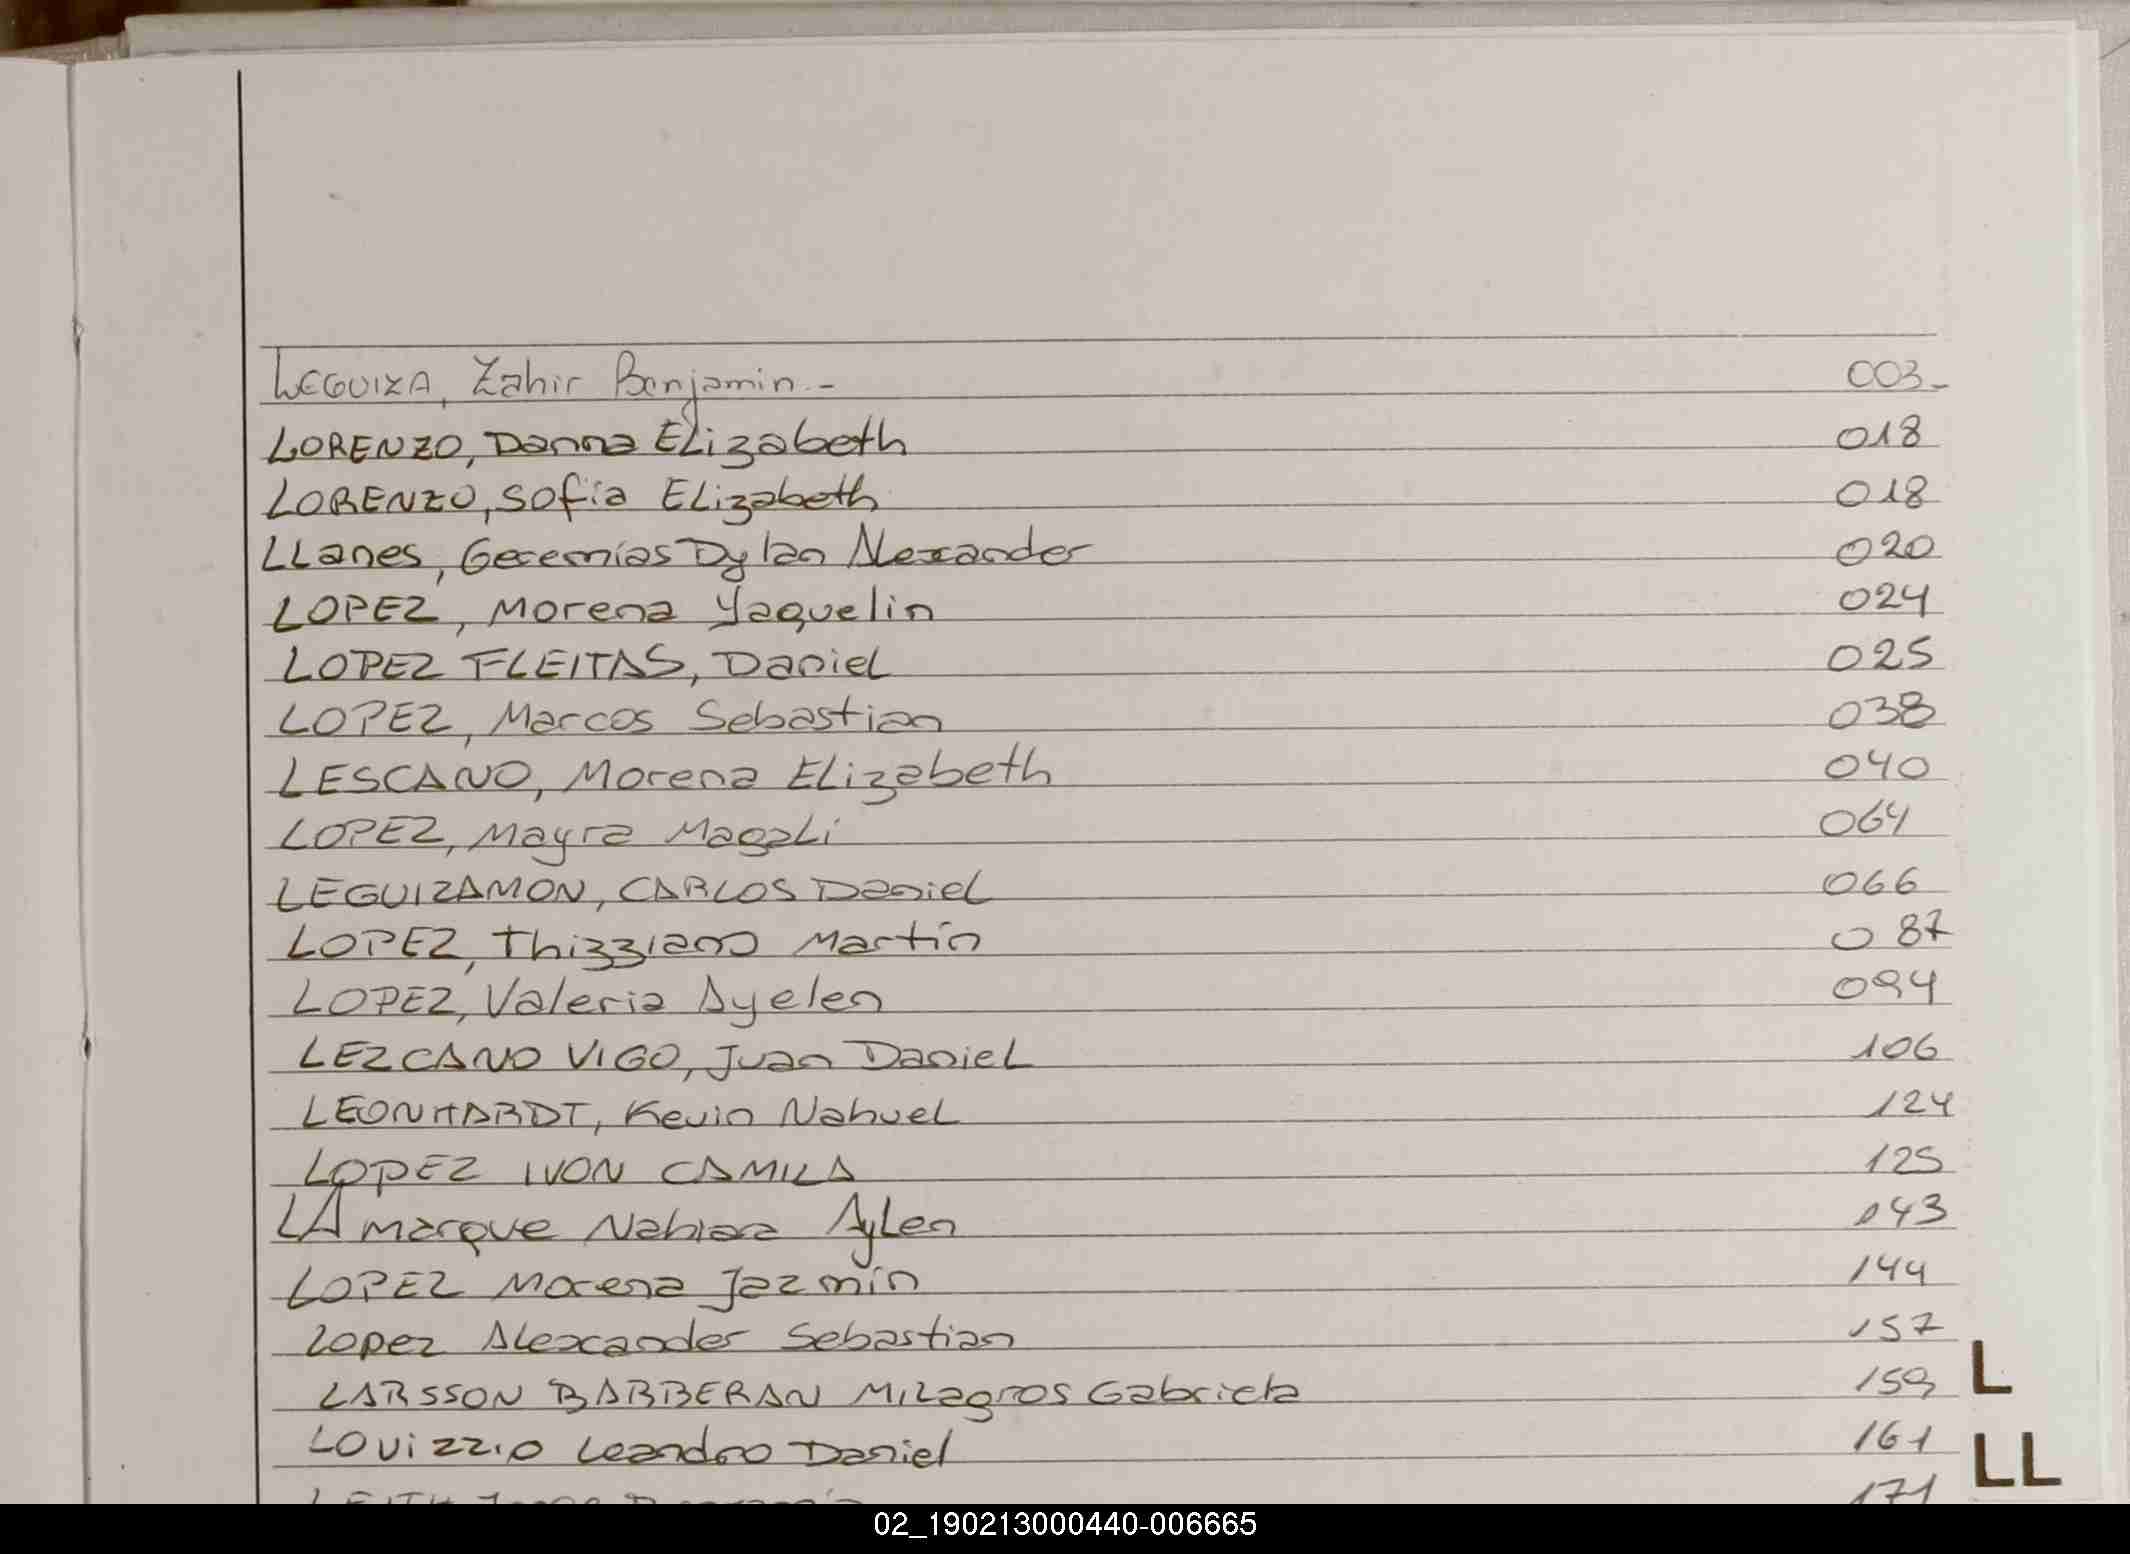 LEGUIZA, Zahir Benjamin.- 003-
LORENZO, Danna ELizabeth 018
LORENZO, Sofia ELizabeth 018
LLanes, Geremías Dylan Alexander 020
LOPEZ, Morena Yaquelin 024
LOPEZ FLEITAS, Daniel 025
LOPEZ, Marcos Sebastian 038
LESCANO, Morena ELizabeth 040
LOPEZ, Mayra Magali 064
LEGUIZAMON, CARLOS Daniel 066
LOPEZ, Thizziano Martín 087
LOPEZ, Valeria Ayelen 094
LEZCANO VIGO, Juan Daniel 106
LEONHARDT, Kevin Nahuel 124
LOPEZ IVON CAMILA 125
LAmarque Nahiara Aylen 143
LOPEZ Morena Jazmín 144
Lopez Alexander Sebastian 157
LARSSON BARBERAN Milagros Gabriela 159
L
LOVizzio Leandro Daniel 161
LL
171
02_190213000440-006665